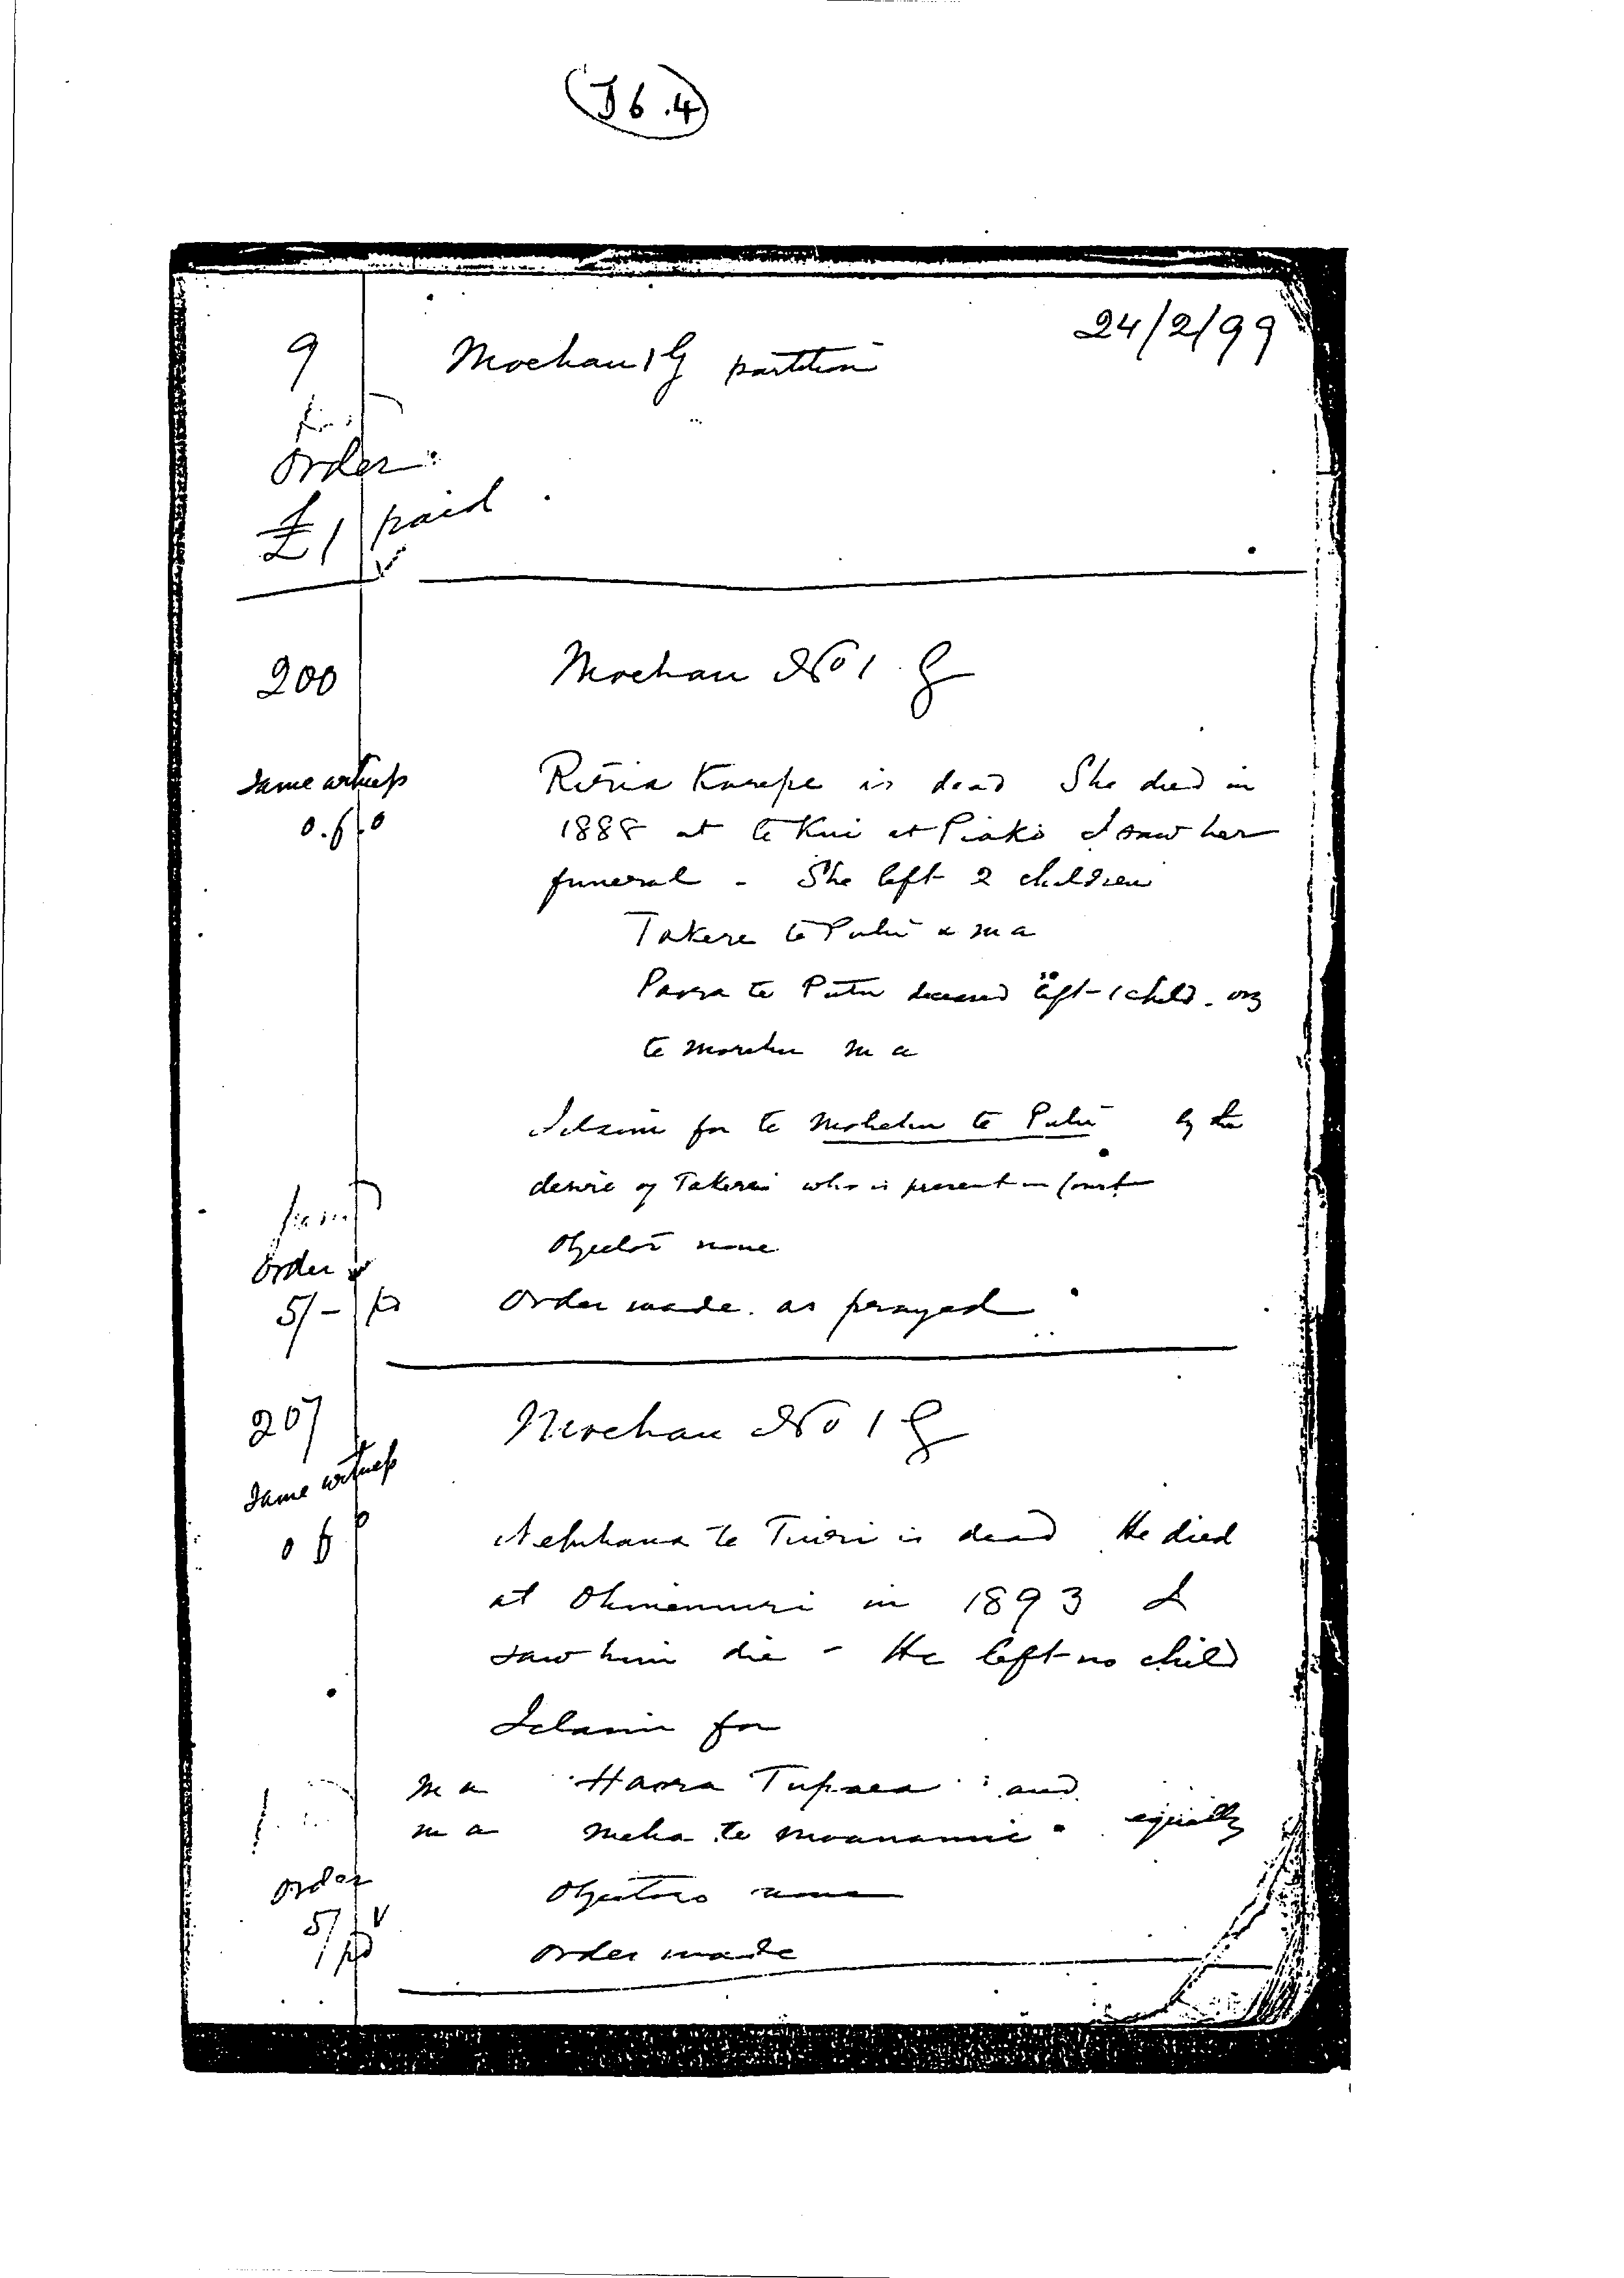 (J6.4)
24/2/99
9 Moehau 1G partition
Order
£1 paid
200 Moehau No 1 G
Same witness
Ritia Karepe is dead She died in
0.6.0 1888 at te Kui at Piako I saw her
funeral - She left 2 children
Takere te Putu a m a
Paora te Putu deceased left 1 child.
te Morehu m a
I claim for te Morehu te Putu by the
desire of Takerei who is present in Court
Objectors none
Order
5/- pd Order made as prayed
207 Moehau No 1 G
Same witness
0 6 0 Nepihana te Tuiri is dead He died
at Ohinemuri in 1893 I
saw him die - He left no child
I claim for
m a Haora Tupaea and
m a Meha te Moananui equally
Order Objectors none
5/ pd Order made